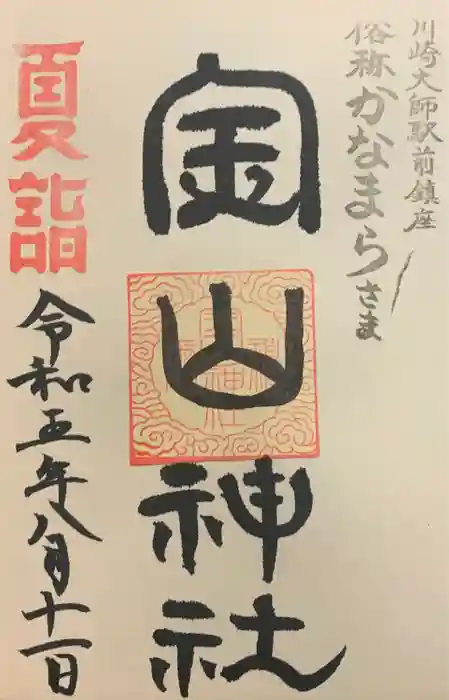 川崎大師駅前鎮座
俗称かなまらさま
金山神社
夏詣
令和五年八月十一日